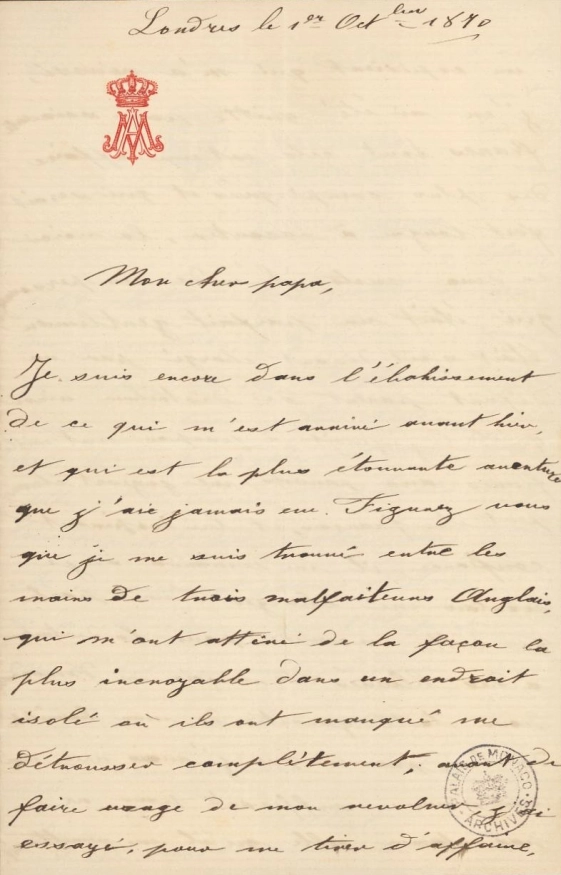 Londres le 1er Octbre 1870
Mon cher papa,
Je suis encore dans l'ébahissement
de ce qui m'est arrivé avant hier,
et qui est la plus étonnante aventure
que j'aie jamais eue. Figurez vous
que je me suis trouvé entre les
mains de trois malfaiteurs Anglais,
qui m'ont attiré de la façon la
plus incroyable dans un endroit
isolé où ils ont manqué me
détrousser complètement; avant de
faire usage de mon revolver, j'ai
essayé, pour me tirer d'affaire,
PALAIS DE MONACO
ARCHIVES